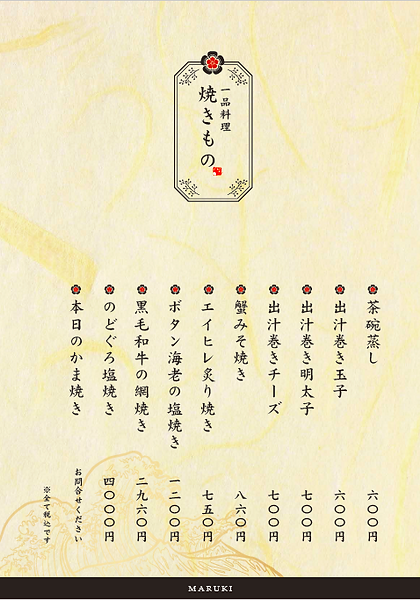 一品料理
焼きもの
茶碗蒸し 六〇〇円
出汁巻き玉子 六〇〇円
出汁巻き明太子 七〇〇円
出汁巻きチーズ 七〇〇円
蟹みそ焼き 八六〇円
エイヒレ炙り焼き 七五〇円
ボタン海老の塩焼き 一二〇〇円
黒毛和牛の網焼き 二九六〇円
のどぐろ塩焼き 四〇〇〇円
本日のかま焼き お問合せください
※全て税込です
MARUKI